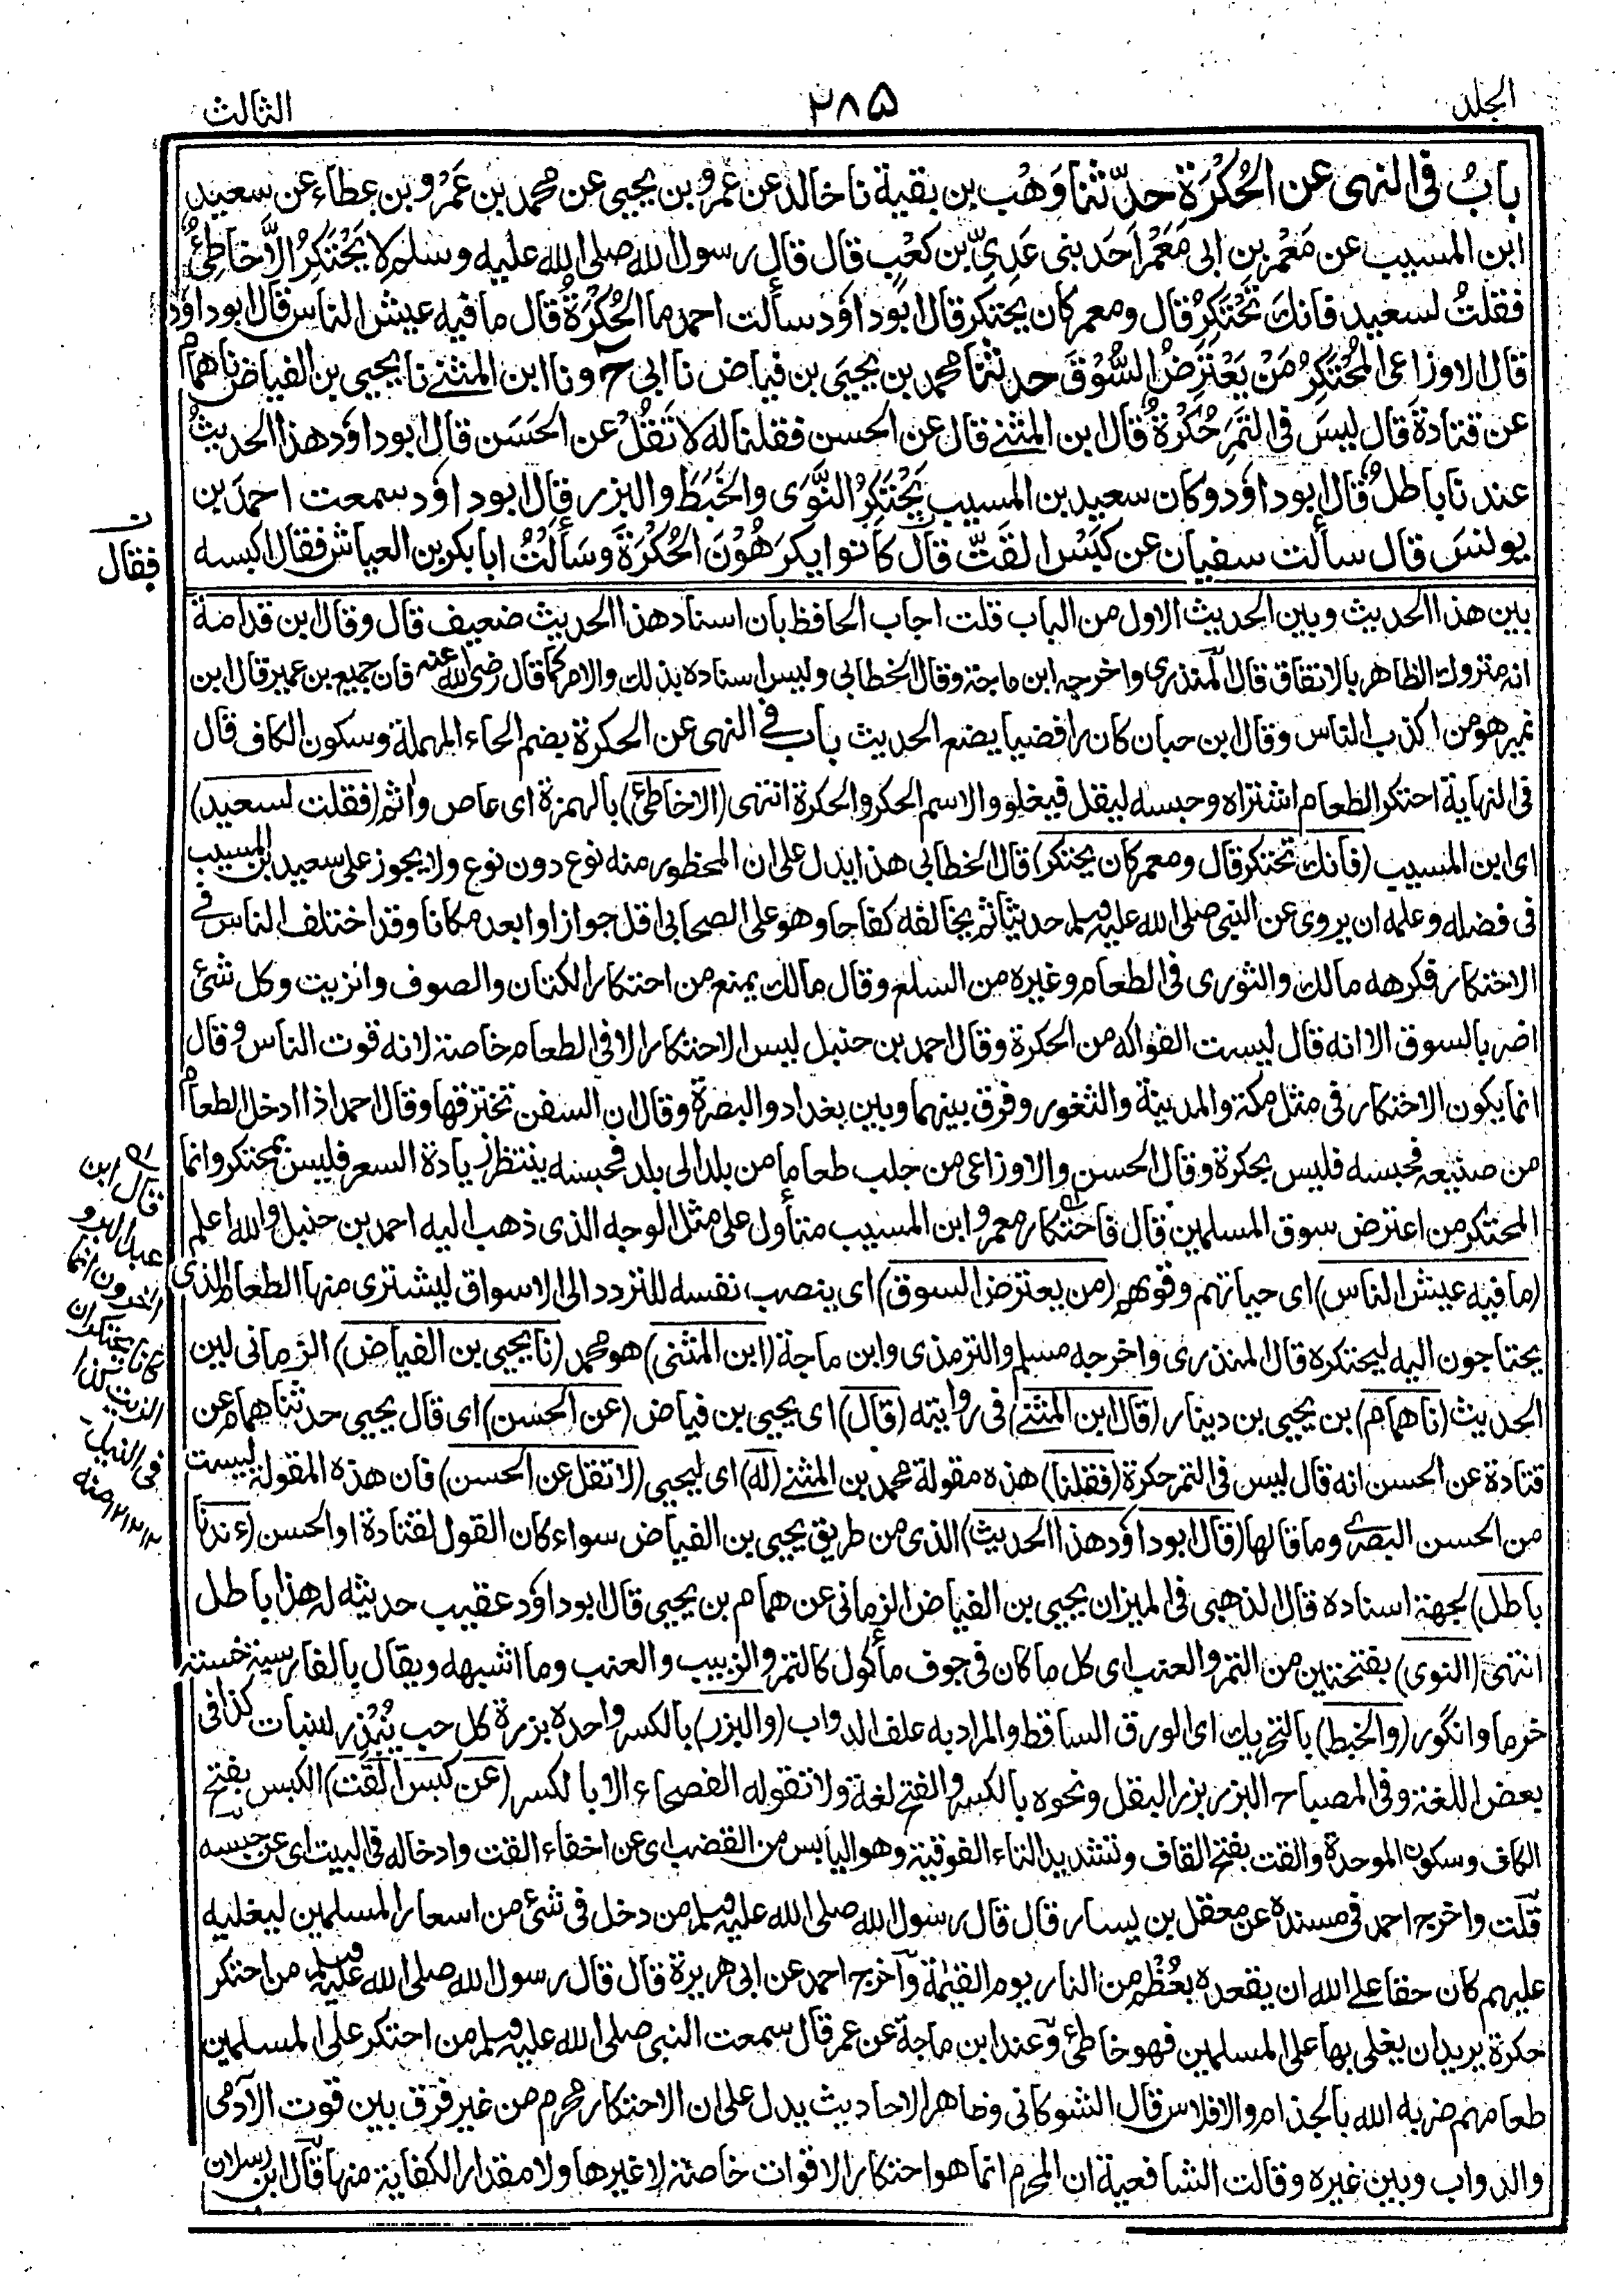 الجلد
۲۸۵
الثالث
بابُ فی النهی عن الحُكْرَةِ حدّثنا وَهْب بن بقية نا خالد عن عمرو بن يحيی عن محمد بن عَمْرو بن عطاء عن سعيد
ابن المسيب عن مَعْمَر بن ابی مَعْمَر اَحَد بنی عَدِیِّ بن كَعْب قال قال رسول الله صلی الله عليه وسلم لا يَحْتَكِرُ الَّا خاطِئٌ
فقلتُ لسعيد فانك تَحْتَكِرُ قال ومعمر كان يحتكر قال ابوداؤد سألت احمد ما الحُكْرَةُ قال ما فيه عيش الناس قال ابوداؤد
قال الاوزاعی المُحْتَكِرُ مَنْ يَعْتَرِضُ السُّوْقَ حدثنا محمد بن يحيَی بن فياض نا ابی ح ونا ابن المثنے نا يحيی بن الفياض نا همام
عن قتادةَ قال ليسَ فی التَّمَرِ حُكْرَةٌ قال ابن المثنے قال عن الحسن فقلنا له لا تَقُلْ عن الحَسَن قال ابوداؤد هذا الحديثُ
عندنا باطلٌ قال ابوداؤد وكان سعيد بن المسيب يَحْتَكِرُ النَّوَی والخَبَطَ والبزر قال ابوداؤد سمعت احمدَ بن
يونسَ قال سألت سفيان عن كَبْس القَتّ قال كانوا يكرَهُوْنَ الحُكْرَةَ وسَاَلْتُ ابا بكر بن العياش فقال اكبسه
ن
فقال
بين هذا الحديث وبين الحديث الاول من الباب قلت اجاب الحافظ بان اسناد هذا الحديث ضعيف قال وقال ابن قدامة
انه متروك الظاهر بالاتفاق قال المنذری واخرجه ابن ماجة وقال الخطابی وليس اسناده بذلك والامر كما قال رضی الله عنه فان جميع بن عمير قال ابن
نمير هو من اكذب الناس وقال ابن حبان كان رافضيا يضع الحديث باب فے النهی عن الحكرة بضم الحاء المهملة وسكون الكاف قال
فی النهاية احتكر الطعام اشتراه وحبسه ليقل فيغلو والاسم الحكر والحكرة انتهی (الا خاطئ) بالهمزة ای عاص واٰثم (فقلت لسعيد)
ای ابن المسيب (فانك تحتكر قال ومعمر كان يحتكر) قال الخطابی هذا يدل علی ان المحظور منه نوع دون نوع ولا يجوز علی سعيد بن المسيب
فی فضله وعلمه ان يروی عن النبی صلی الله عليه وسلم حديثا ثم يخالفه كفاحا وهو علی الصحابی اقل جوازا وابعد مكانا وقد اختلف الناس فے
الاحتكار فكرهه مالك والثوری فی الطعام وغيره من السلع وقال مالك يمنع من احتكار الكتان والصوف والزيت وكل شئ
اضر بالسوق الا انه قال ليست الفواكه من الحكرة وقال احمد بن حنبل ليس الاحتكار الا فی الطعام خاصة لانه قوت الناس وقال
انما يكون الاحتكار فی مثل مكة والمدينة والثغور وفرق بينهما وبين بغداد والبصرة وقال ان السفن تخترقها وقال احمد اذا ادخل الطعام
من ضيعه فحبسه فليس بحكرة وقال الحسن والاوزاعی من جلب طعاما من بلد الی بلد فحبسه ينتظر زيادة السعر فليس بمحتكر وانما
المحتكر من اعترض سوق المسلمين قال فاحتكار معمر وابن المسيب متأول علی مثل الوجه الذی ذهب اليه احمد بن حنبل والله اعلم
(ما فيه عيش الناس) ای حياتهم وقوتهم (من يعترض السوق) ای ينصب نفسه للتردد الی الاسواق ليشتری منها الطعام الذی
يحتاجون اليه ليحتكره قال المنذری واخرجه مسلم والترمذی وابن ماجة (ابن المثنی) هو محمد (نا يحيی بن الفياض) الزمانی لين
الحديث (نا همام) بن يحيی بن دينار (قال ابن المثنے) فی روايته (قال) ای يحيی بن فياض (عن الحسن) ای قال يحيی حدثنا همام عن
قتادة عن الحسن انه قال ليس فی التمر حكرة (فقلنا) هذه مقولة محمد بن المثنے (له) ای ليحيی (لا تقل عن الحسن) فان هذه المقولة ليست
من الحسن البصرے وما قالها (قال ابوداؤد هذا الحديث) الذی من طريق يحيی بن الفياض سواء كان القول لقتادة او الحسن (عندنا
باطل) لجهة اسناده قال الذهبی فی الميزان يحيی بن الفياض الزمانی عن همام بن يحيی قال ابوداؤد عقيب حديثه له هذا باطل
انتهی (النوی) بفتحتين من التمر والعنب ای كل ما كان فی جوف مأكول كالتمر والزبيب والعنب وما اشبهه ويقال بالفارسية خسته
خرما وانگور (والخبط) بالتحريك ای الورق الساقط والمراد به علف الدواب (والبزر) بالكسر واحده بزرة كل حب يُبْذر لنبات كذا فی
بعض اللغة وفی المصباح البزر بزر البقل ونحوه بالكسر والفتح لغة ولا تقوله الفصحاء الا بالكسر (عن كبس القت) الكبس بفتح
الكاف وسكون الموحدة والقت بفتح القاف وتشديد التاء الفوقية وهو اليابس من القضب ای عن اخفاء القت وادخاله فی البيت ای عن حبسه
قلت واخرج احمد فی مسنده عن معقل بن يسار قال قال رسول الله صلی الله عليه وسلم من دخل فی شئ من اسعار المسلمين ليغليه
عليهم كان حقا علے الله ان يقعده بعُظْم من النار يوم القيٰمة واخرج احمد عن ابی هريرة قال قال رسول الله صلی الله عليه وسلم من احتكر
حكرة يريد ان يغلی بها علی المسلمين فهو خاطئ وعند ابن ماجة عن عمر قال سمعت النبی صلی الله عليه وسلم من احتكر علی المسلمين
طعامهم ضربه الله بالجذام والافلاس قال الشوكانی وظاهر الاحاديث يدل علی ان الاحتكار محرم من غير فرق بين قوت الآدمی
والدواب وبين غيره وقالت الشافعية ان المحرم انما هو احتكار الاقوات خاصة لا غيرها ولا مقدار الكفاية منها قال ابن رسلان
قال ابن
عبد البر و
اٰخرون انما
كانا يحتكران
الزيت كذا
فی النيل
۱۲ منه